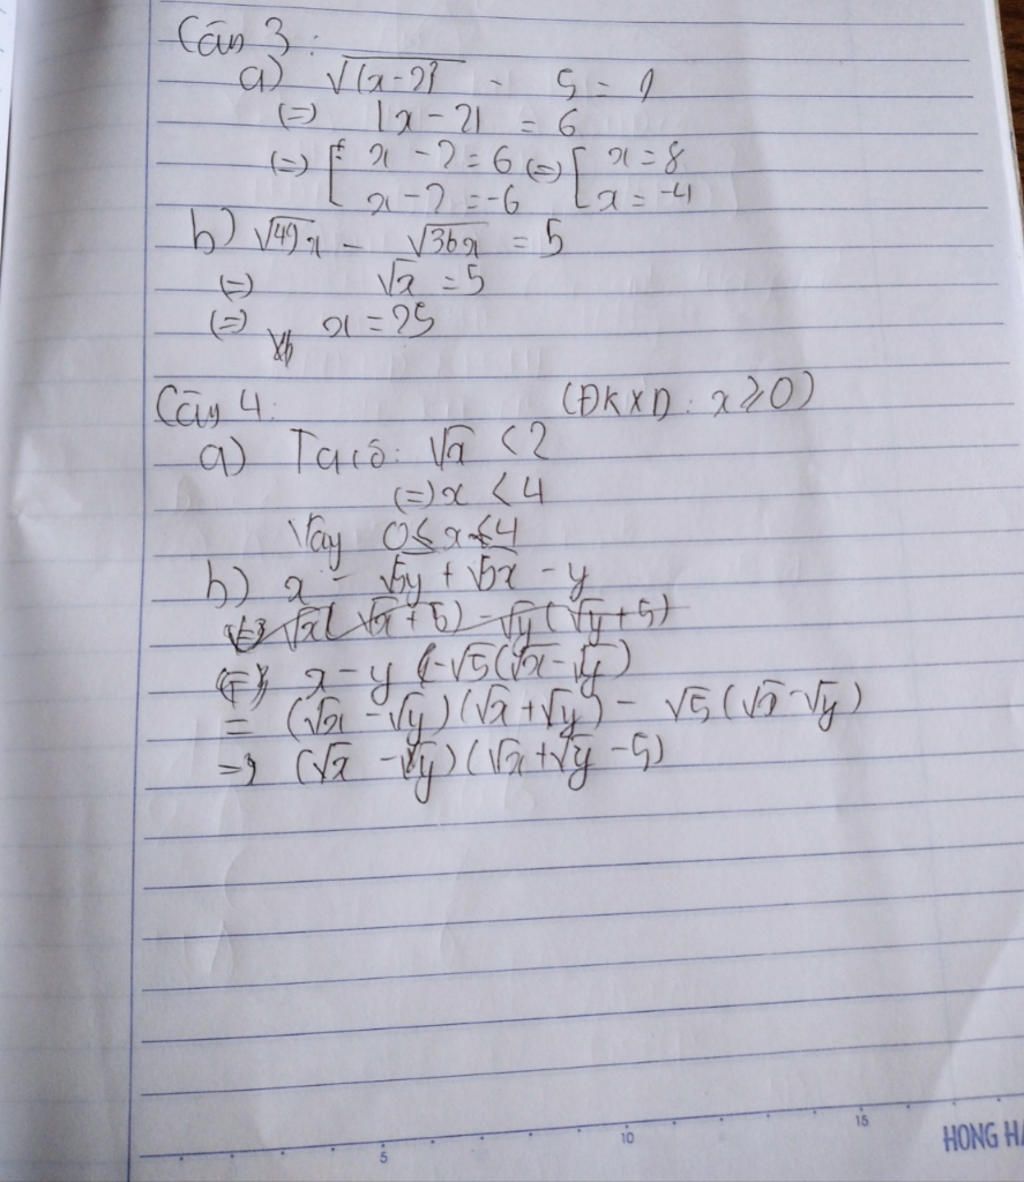 Câu 3:
a) √(x-2)² - 5 = 1
(=) |x-2| = 6
(=) [ x-2=6 (=) [ x=8
x-2=-6 x=-4
b) √49x - √36x = 5
(=) √x = 5
(=) x = 25
Câu 4: (ĐKXĐ: x ≥ 0)
a) Ta có: √x < 2
(=) x < 4
Vậy 0 ≤ x < 4
b) x - √5y + √5x - y
√x(√x+5) - √y(√y+5)
x - y - √5(√x-√y)
= (√x-√y)(√x+√y) - √5(√x-√y)
= (√x-√y)(√x+√y-5)
5 10 15
HONG HA